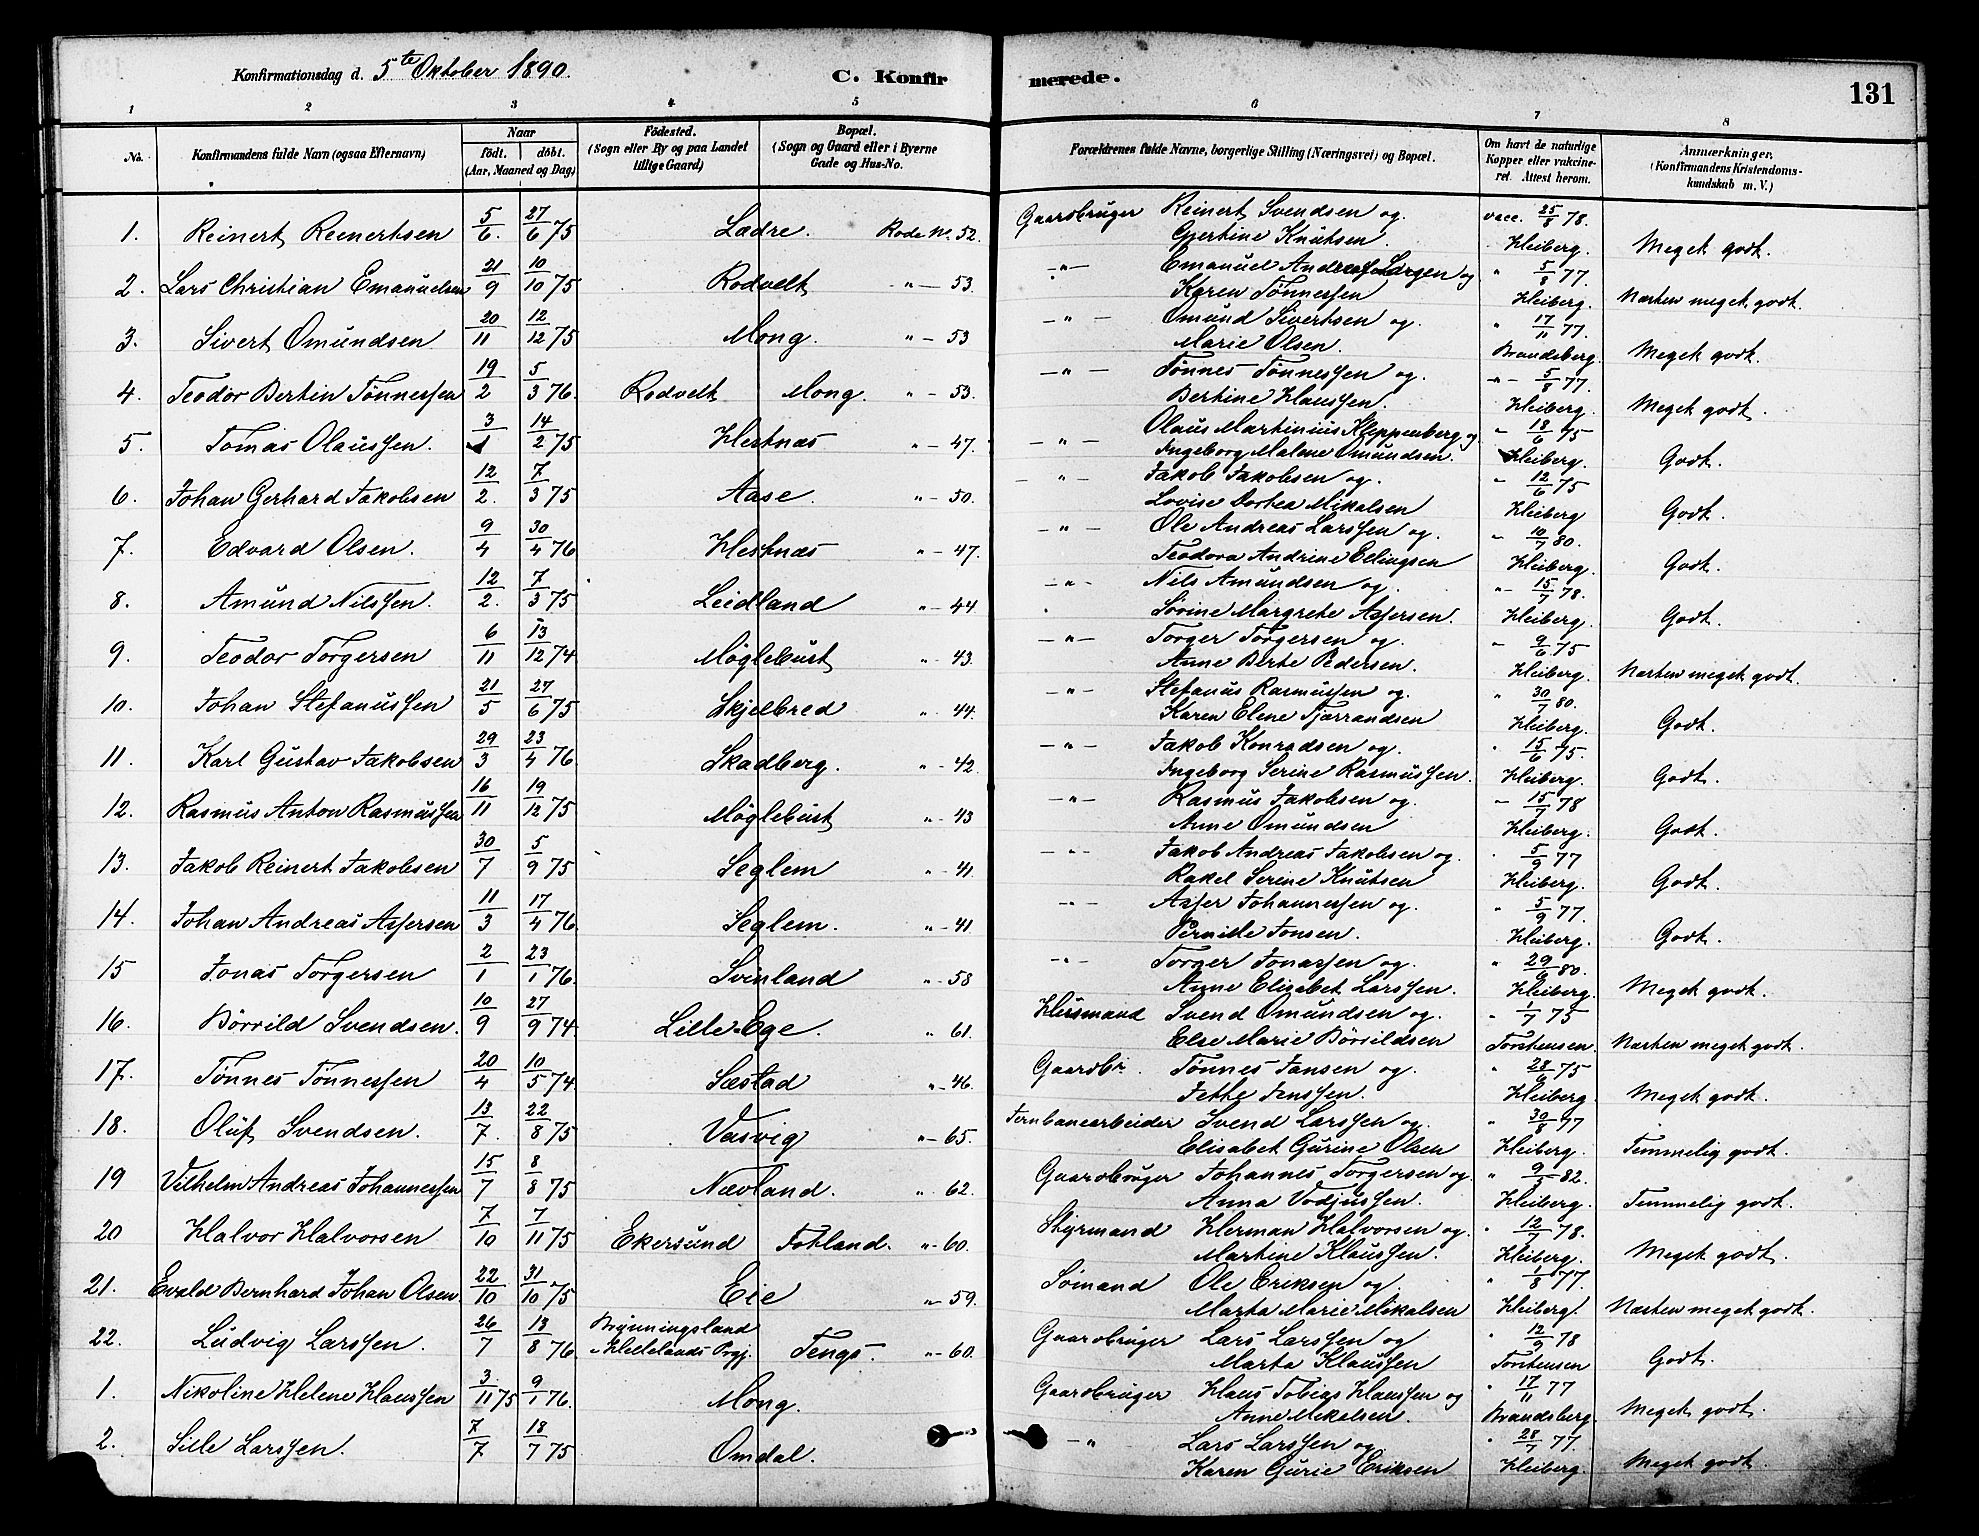 Konfirmationsdag d. 5te Oktober 1890. C. Konfirmerede. 131
1 2 3 4 5 6 7 8
No. Konfirmandens fulde Navn (ogsaa Efternavn) Naar födt. döbt. (Aar, Maaned og Dag) Födested. (Sogn eller By og paa Landet tillige Gaard) Bopæl. (Sogn og Gaard eller i Byerne Gade og Hus-No. Forældrenes fulde Navne, borgerlige Stilling (Næringsvei) og Bopæl. Om havt de naturlige Kopper eller vakcineret. Attest herom. Anmærkninger. (Konfirmandens Kristendomskundskab m. V.)
1. Reinert Reinertsen 5/6 27/6 75 Lædre. Rode No. 52. Gaardbruger Reinert Svendsen og vacc. 25/8 78.
Gjertine Knutsen. Heiberg. Meget godt.
2. Lars Christian Emanuelsen 21/9 10/10 75 Rodvelt " — 53. —"— Emanuel Andreas Larsen og " 5/8 77.
Karen Tønnessen Heiberg. Næsten meget godt.
3. Sivert Omundsen 20/11 12/12 75 Mong. " — 53 —"— Omund Sivertsen og " 17/11 77.
Marie Olsen. Brandsberg. Meget godt.
4. Teodor Bertin Tønnessen 19/2 5/3 76. Rodvelt Mong. " — 53. —"— Tønnes Tønnessen og —"— 5/8 77.
Bertine Hanssen. Heiberg. Meget godt.
5. Tomas Olaussen. 3/1 14/2 75 Hestnæs " — 47. —"— Olaus Martinius Kleppenberg og " 18/6 75
Ingeborg Malene Omundsen. Heiberg. Godt.
6. Johan Gerhard Jakobsen 12/2. 7/3 75 Aase. " — 50. —"— Jakob Jakobsen og " 12/6 75
Lovise Dortea Mikalsen Heiberg Godt.
7. Edvard Olsen. 9/4 30/4 76 Hestnæs " — 47. —"— Ole Andreas Larssen og " 10/7 80.
Teodora Andrine Ellingsen Heiberg. Godt.
8. Amund Nilssen. 12/2. 7/3 75 Leidland " — 44 —"— Nils Amundsen og " 15/7 78.
Sørine Margrete Assersen. Heiberg. Godt.
9. Teodor Torgersen 6/11 13/12 74 Møglebust " — 43. —"— Torger Torgersen og " 9/6 75
Anne Berte Pedersen. Heiberg. Næsten meget godt.
10. Johan Stefanussen 21/5 27/6 75 Skjelbred " — 44. —"— Stefanus Rasmussen og " 30/7 80.
Karen Elene Tjærrandsen Heiberg. Godt.
11. Karl Gustav Jakobsen 29/3 23/4 76 Skadberg. " — 42 —"— Jakob Konradsen og " 15/6 75
Ingeborg Serine Rasmussen. Heiberg. Godt.
12. Rasmus Anton Rasmussen 16/11 19/12 75 Møglebust " — 43 —"— Rasmus Jakobsen og " 15/7 78
Anne Omundsen Heiberg. Godt.
13. Jakob Reinert Jakobsen 30/7 5/9 75 Seglem " — 41 —"— Jakob Andreas Jakobsen og " 5/9 77
Rakel Serine Knutsen Heiberg. Godt.
14. Johan Andreas Assersen 11/3 17/4 76 Seglem. " — 41 —"— Asser Johannessen og " 5/9 77.
Pernille Jonsen. Heiberg. Godt.
15 Jonas Torgersen 2/1 23/1 76. Svinland " — 58 —"— Torger Jonassen og " 29/6 80.
Anne Elisabet Larssen. Heiberg. Meget godt.
16. Børrild Svendsen. 10/9 27/9 74. Lille Ege. " 61. Husmand Svend Omundsen og " 1/7 75
Else Marie Børrildsen Torstensen. Næsten meget godt.
17. Tønnes Tønnessen 20/4 10/5 74. Sæstad " — 46. Gaardbr. Tønnes Jansen og " 28/6 75
Jette Jenssen. Heiberg. Meget godt.
18. Oluf Svendsen. 13/7. 22/8 75 Vasvig " — 65. Jernbanearbeider Svend Larssen og " 30/8 77
Elisabet Gurine Olsen Heiberg. Temmelig godt.
19 Vilhelm Andreas Johannessen 15/7 8/8 75 Nævland. " 62. Gaardbruger Johannes Torgersen og 82.
Anna Vodjussen. Heiberg. Temmelig godt.
20 Halvor Halvorsen 7/10 7/11 75 Ekersund Fotland. " — 60. Styrmand Herman Halvorsen og " 12/7 78.
Martine Klaussen. Heiberg. Meget godt.
21. Evald Bernhard Johan Olsen 22/10 31/10 75 Eie " — 59. Sømand Ole Eriksen og " 1/8 77.
Marta Marie Mikalsen Heiberg. Næsten meget godt.
22. Ludvig Larssen. 26/7 13/8 76. Brynningsland Hellelands Prgj. Tengs. " — 60. Gaardbruger Lars Larssen og " 12/9 78
Marta Klaussen Torstensen Godt.
1. Nikoline Helene Hanssen 3/11 75 9/1 76. Mong. Gaardbruger Hans Tobias Hanssen og " 17/11 77
Anne Mikalsen. Brandsberg. Meget godt.
2. Sille Larssen. 7/7 18/7 75 Omdal. —" Lars Larssen og " 28/7 77.
Karen Gurie Eriksen Heiberg. Meget godt.